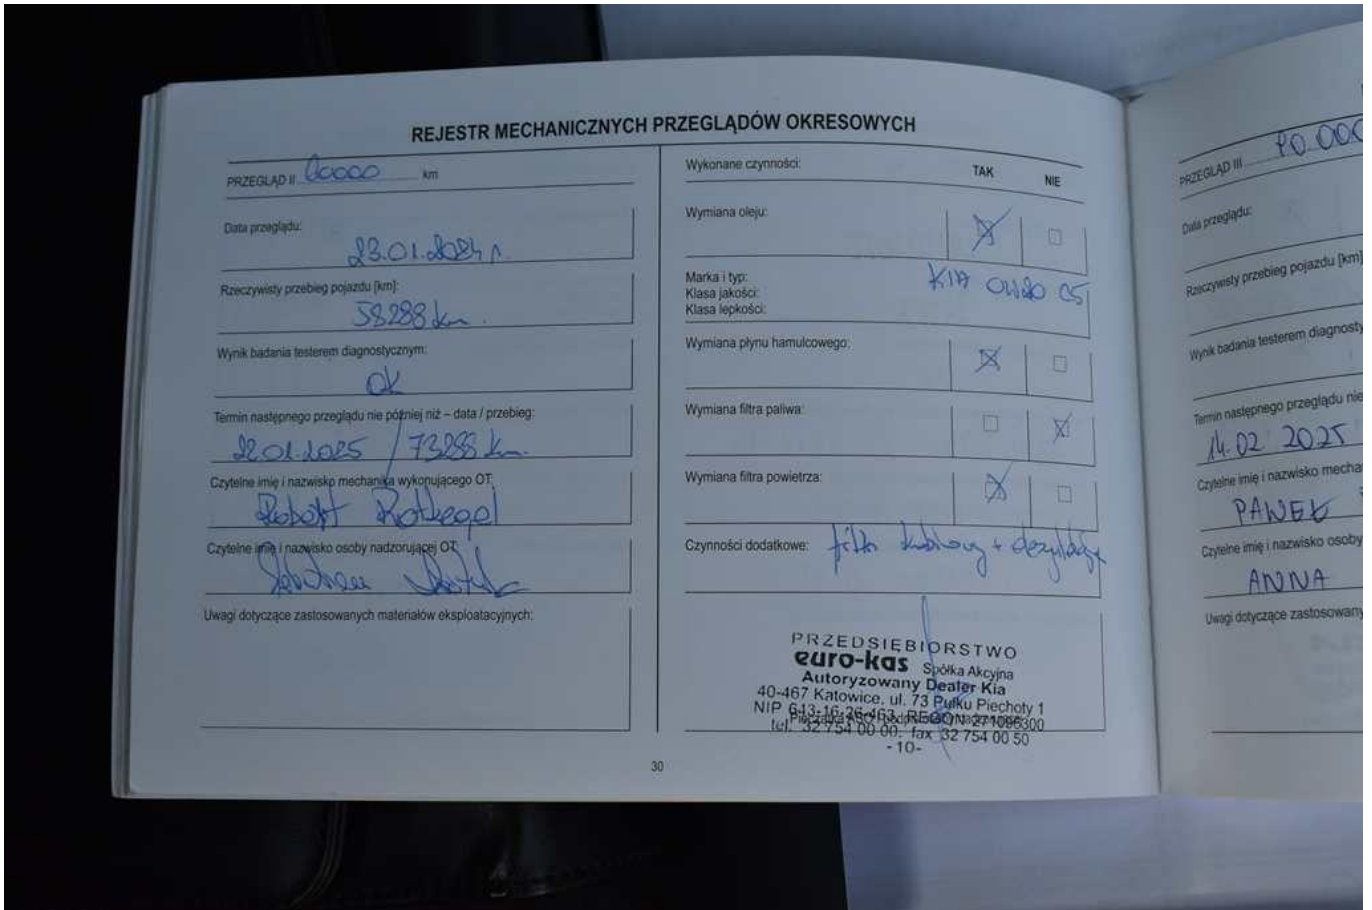 REJESTR MECHANICZNYCH PRZEGLĄDÓW OKRESOWYCH
PRZEGLĄD II km
Data przeglądu:
23.01.2024 r.
Rzeczywisty przebieg pojazdu [km]:
58288 km.
Wynik badania testerem diagnostycznym:
OK
Termin następnego przeglądu nie później niż – data / przebieg:
22.01.2025 / 73288 km.
Czytelne imię i nazwisko mechanika wykonującego OT
Robert Rotkegel
Czytelne imię i nazwisko osoby nadzorującej OT
Uwagi dotyczące zastosowanych materiałów eksploatacyjnych:
Wykonane czynności: TAK NIE
Wymiana oleju:
Marka i typ: KIA 0W20 C5
Klasa jakości:
Klasa lepkości:
Wymiana płynu hamulcowego:
Wymiana filtra paliwa:
Wymiana filtra powietrza:
Czynności dodatkowe: filtr kabinowy +
PRZEDSIĘBIORSTWO
euro-kas Spółka Akcyjna
Autoryzowany Dealer Kia
40-467 Katowice, ul. 73 Pułku Piechoty 1
NIP 643-16-26-463, REGON 271096300
tel. 32 754 00 00, fax 32 754 00 50
-10-
30
PRZEGLĄD III
Data przeglądu:
Rzeczywisty przebieg pojazdu [km]
Wynik badania testerem diagnosty
Termin następnego przeglądu nie
14.02 2025
Czytelne imię i nazwisko mecha
PAWEŁ
Czytelne imię i nazwisko osoby
ANNA
Uwagi dotyczące zastosowany